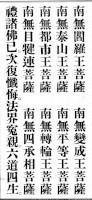 南無閻羅王菩薩　南無變成王菩薩
南無泰山王菩薩　南無平等王菩薩
南無都市王菩薩　南無轉輪王菩薩
南無目犍連菩薩　南無四承相菩薩
禮諸佛已次復懺悔。法界冤親六道四生